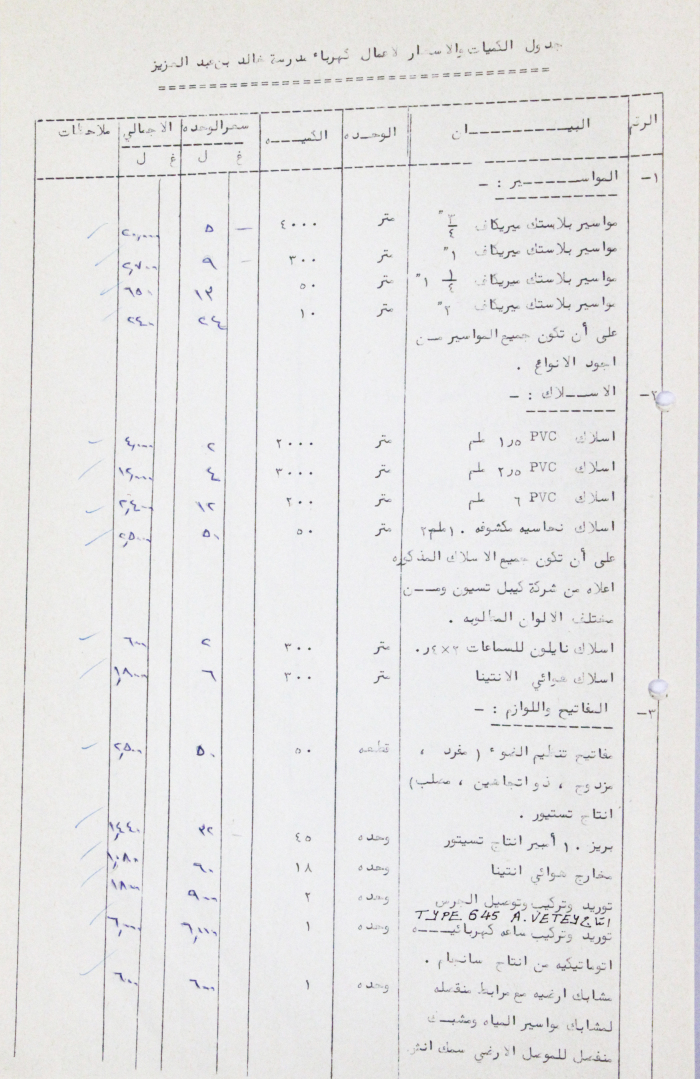 جدول الكميات والاسعار لاعمال كهرباء مدرسة خالد بن عبد العزيز
الرقم البيــــــــان الوحده الكميــه سعر الوحده الاجمالي ملاحظات
غ ل غ ل
١- المواســــــير : -
مواسير بلاستك ميريكاف ٣/٤" متر ٤٠٠٠ - ٥ ٢٠,٠٠٠
مواسير بلاستك ميريكاف ١" متر ٣٠٠ - ٩ ٢,٧٠٠
مواسير بلاستك ميريكاف ١/٤ ١" متر ٥٠ ١٣ ٦٥٠
مواسير بلاستك ميريكاف ٢" متر ١٠ ٢٤ ٢٤٠
على أن تكون جميع المواسير مــن
اجود الانواع .
٢- الاســـلاك : -
اسلاك PVC ١٫٥ ملم متر ٢٠٠٠ ٢ ٤,٠٠٠
اسلاك PVC ٢٫٥ ملم متر ٣٠٠٠ ٤ ١٢,٠٠٠
اسلاك PVC ٦ ملم متر ٢٠٠ ١٢ ٢,٤٠٠
اسلاك نحاسيه مكشوفه ١٠ ملم٢ متر ٥٠ ٥٠ ٢,٥٠٠
على أن تكون جميع الاسلاك المذكوره
اعلاه من شركة كيبل تسيون ومـــن
مختلف الالوان المطلوبه .
اسلاك نايلون للسماعات متر ٣٠٠ ٢ ٦٠٠
اسلاك هوائي الانتينا متر ٣٠٠ ٦ ١,٨٠٠
٣- المفاتيح واللوازم : -
مفاتيح تنظيم الضوء ( مفرد ، قطعه ٥٠ ٥٠ ٢,٥٠٠
مزدوج ، ذو اتجاهين ، مصلب)
انتاج تستيور .
بريز ١٠ أمبير انتاج تسيتور وحده ٤٥ - ٣٢ ١,٤٤٠
مخارج هوائي انتينا وحده ١٨ ٦٠ ١,٠٨٠
توريد وتركيب وتوصيل الجرس وحده ٢ ٩٠٠ ١٨٠٠
انتاج TYPE 645 A.VETEY
توريد وتركيب ساعه كهربائيـــــه وحده ١ ٦,٠٠٠ ٦,٠٠٠
اتوماتيكيه من انتاج سانجام .
مشابك ارضيه مع مرابط منفصله وحده ١ ٦٠٠ ٦٠٠
لمشابك مواسير المياه ومشبــك
منفصل للموصل الارضي سمك انش